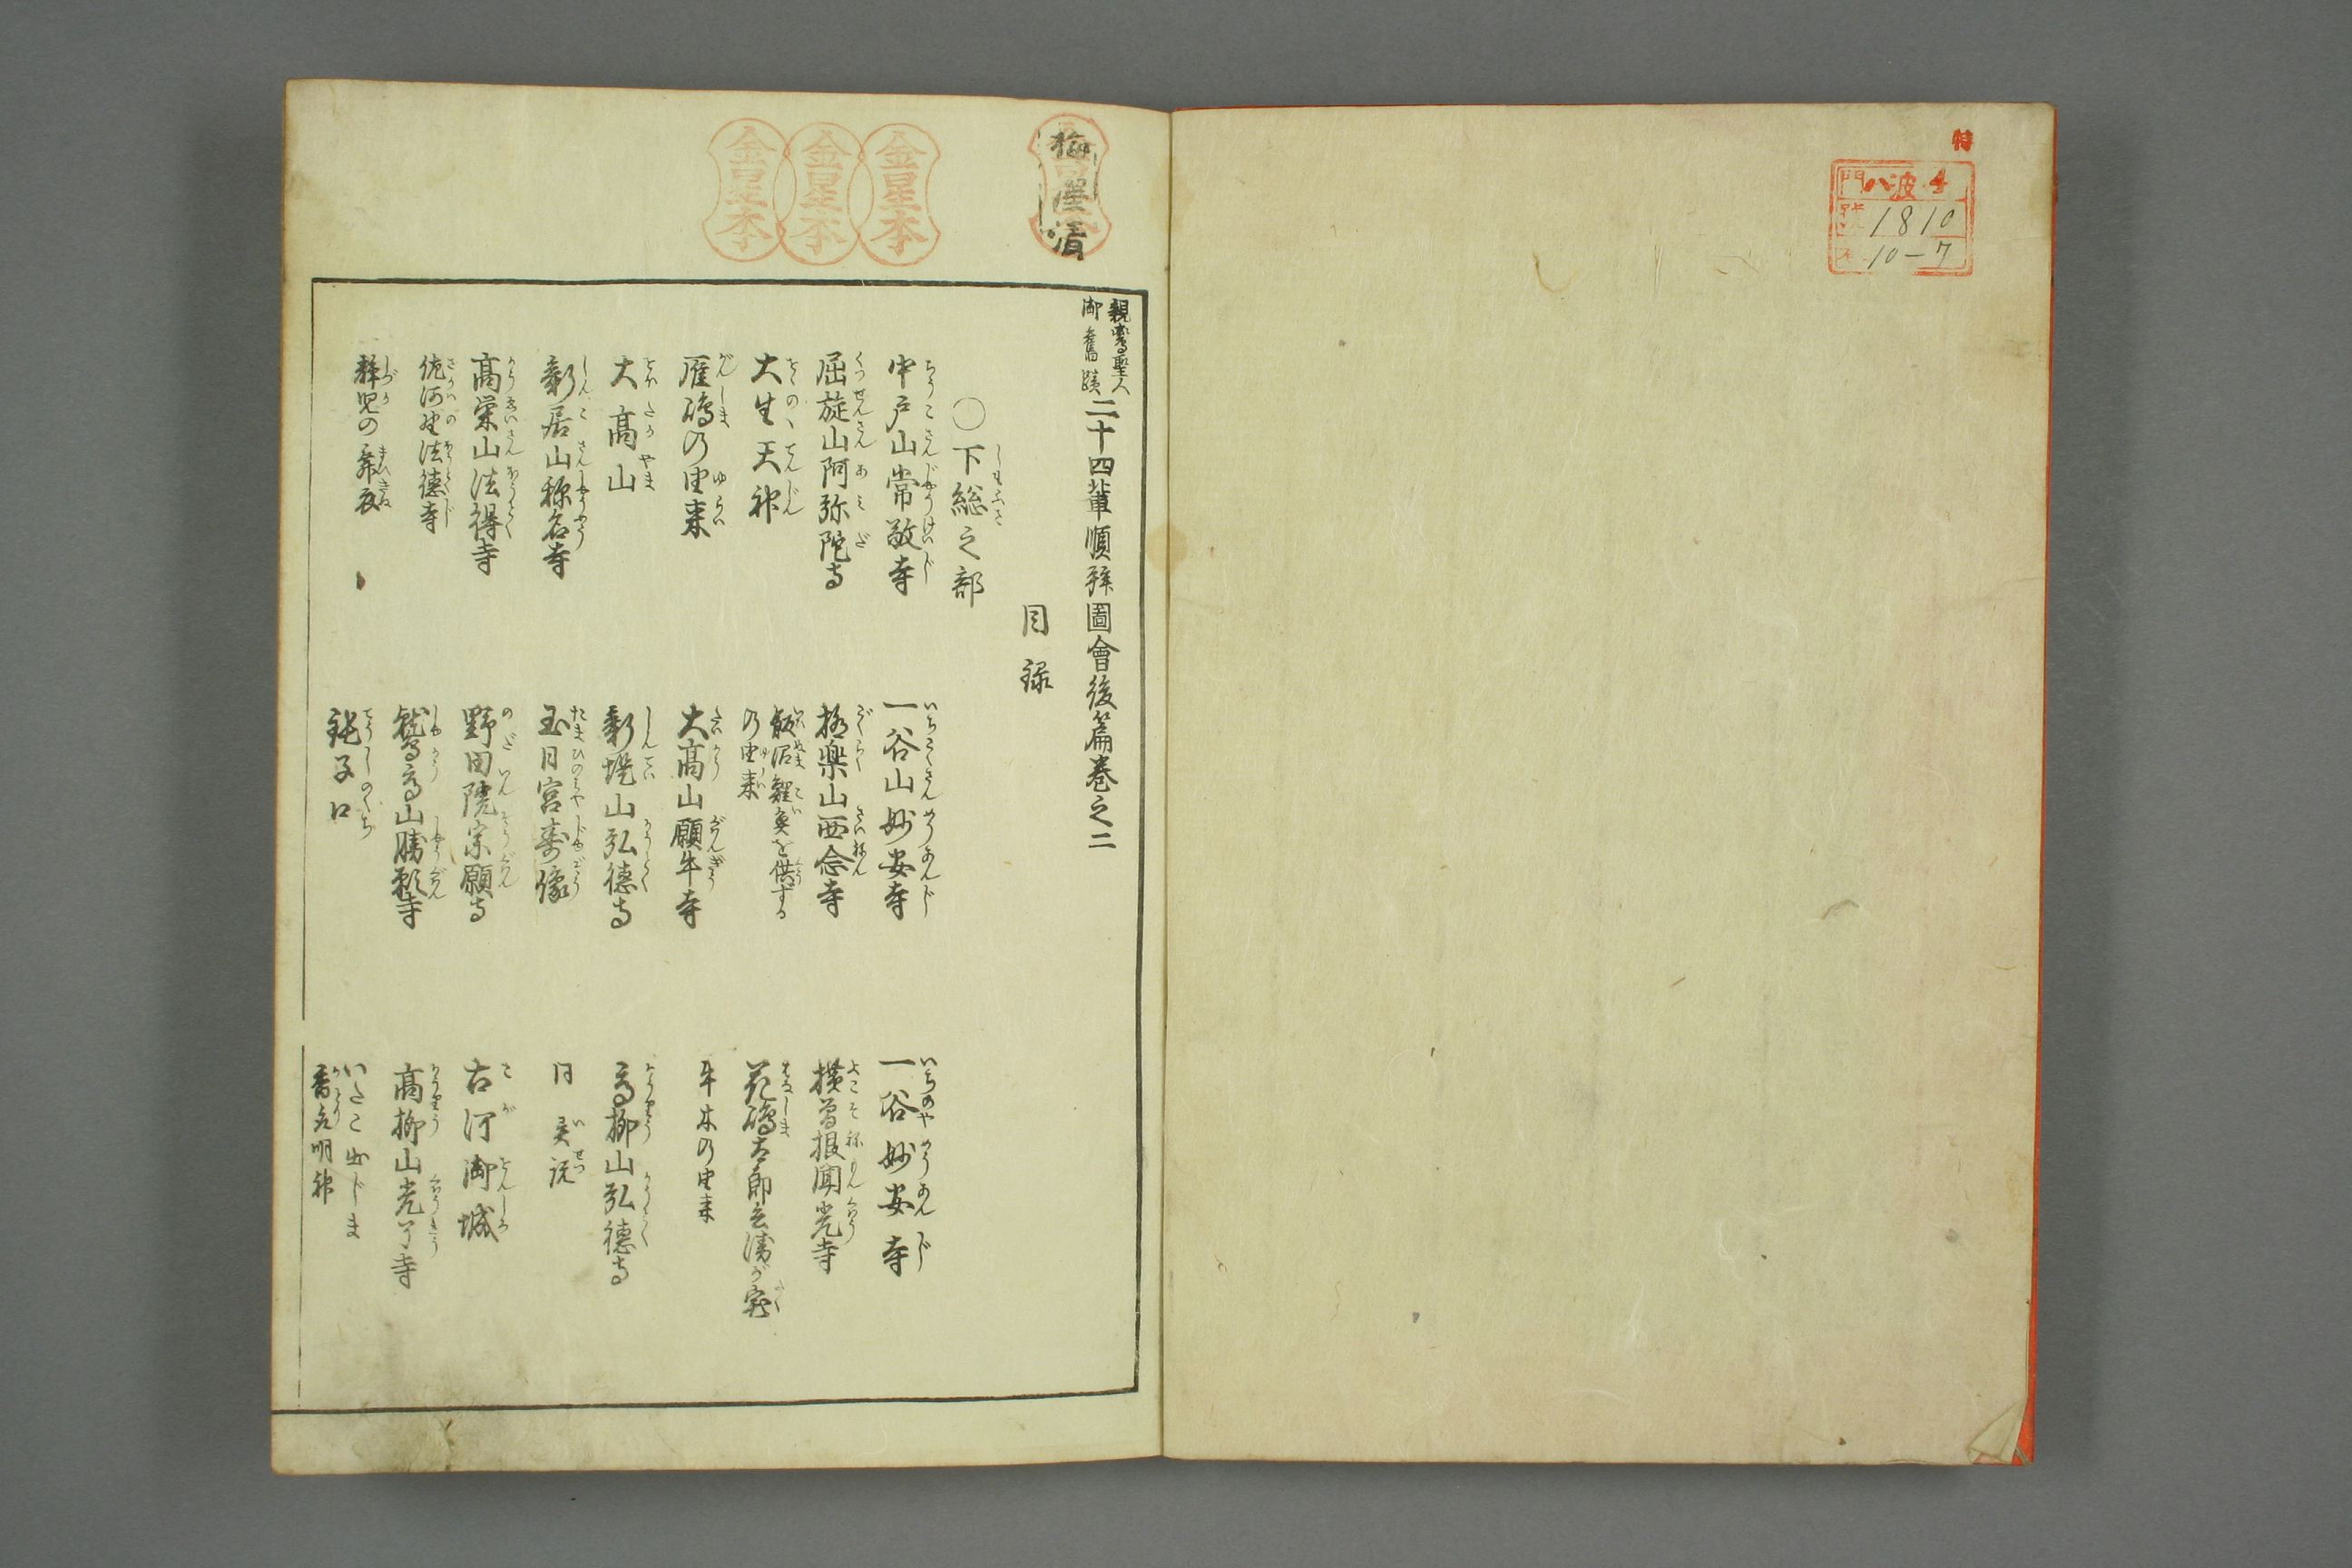 特
門 ハ波4
號 1810
卷 10-7
親鸞聖人
御舊蹟
二十四輩順拜圖會後篇巻之二
目録
〇下総之部
中戸山常敬寺
一谷山妙安寺
一谷妙安寺
屈旋山阿弥陀寺
極楽山西念寺
横曽根聞光寺
大生天神
飯沼鯉魚を供する
の由来
花嶋太郎
雁嶋の由来
大高山願牛寺
牛木の由来
大高山
新堤山弘徳寺
高柳山弘徳寺
新居山称名寺
玉日宮寿像
同異説
高栄山法得寺
野田院宗願寺
古河御城
佐河野法徳寺
鷲高山勝願寺
高柳山光了寺
静児の舞衣
銚子口
いたこ出じま
香取明神
金星本
金星本
金星本